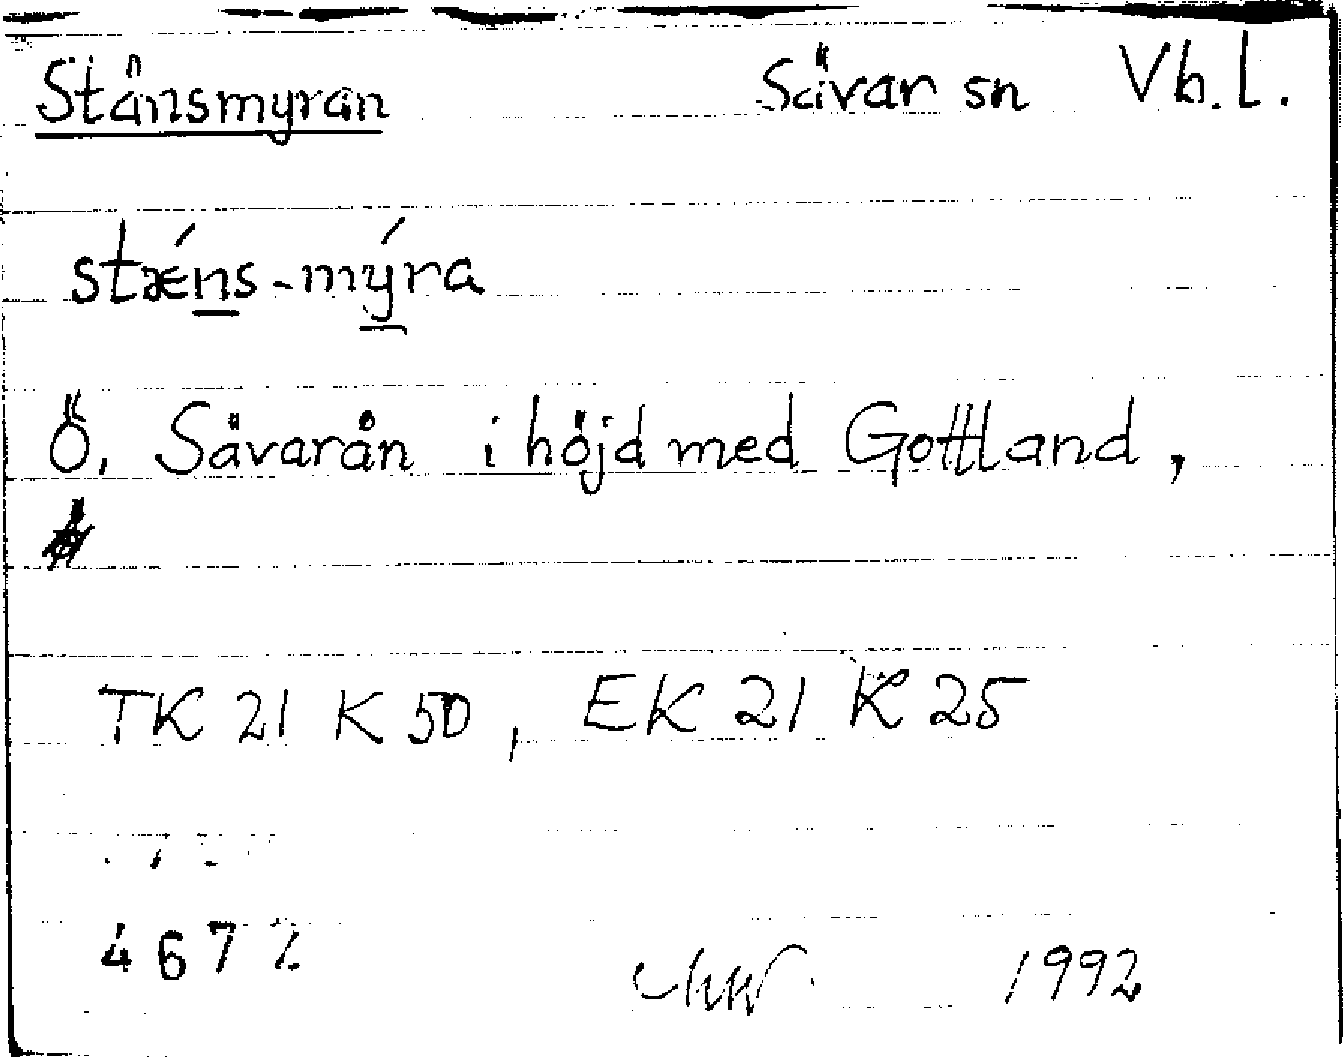 Stånsmyran Sävar sn Vb. l.
stǽns-mýra
Ö. Sävarån i höjd med Gottland,
TK 21 K 50, EK 21 K 25
467
1992